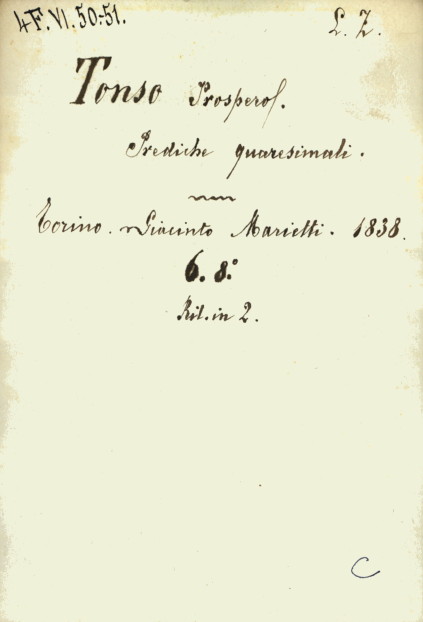 4-F.VI.50-51.
L. Z.
Tonso Prospero.
Prediche quaresimali.
Torino. Giacinto Marietti. 1838.
6. 8.°
Ril. in 2.
C